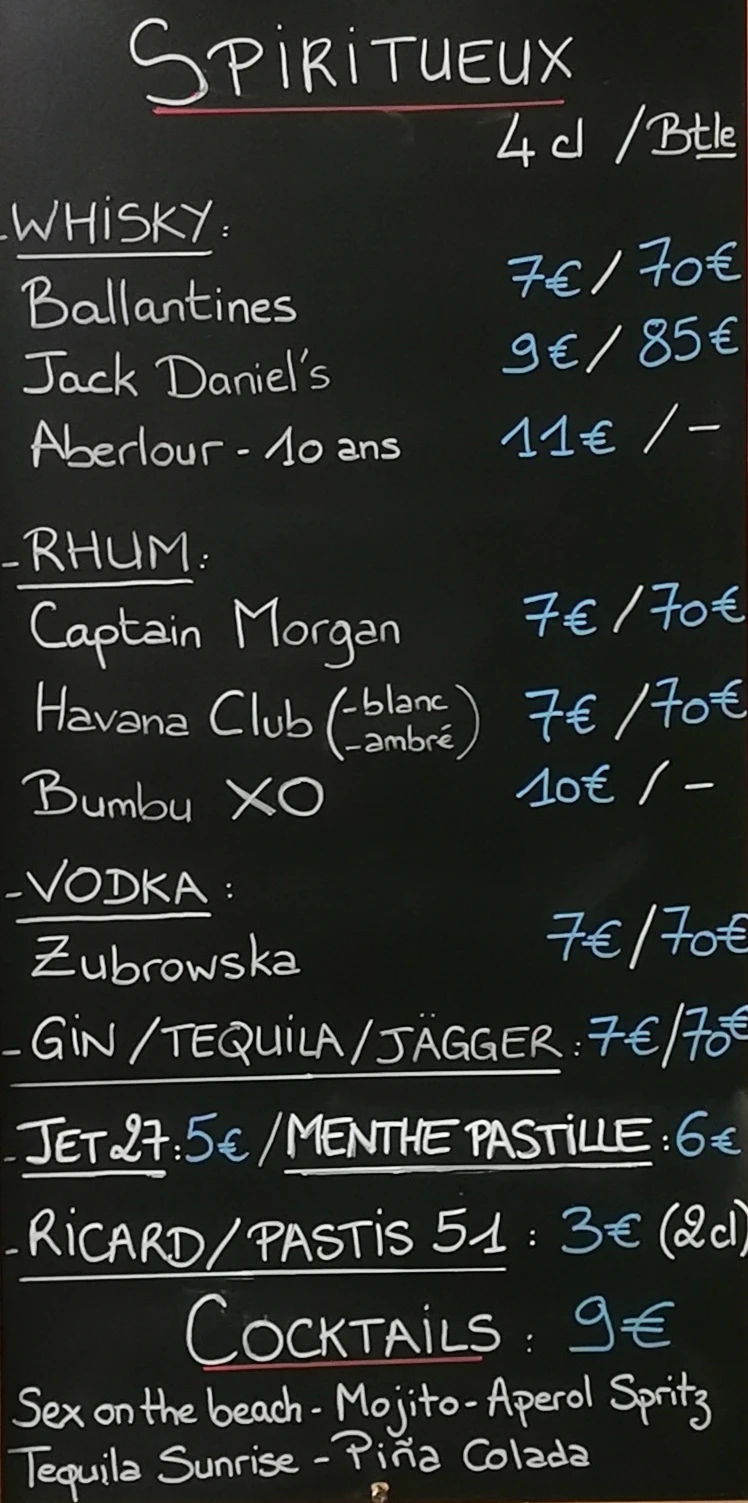 SPIRITUEUX
4 cl / Btle
- WHISKY :
Ballantines 7€ / 70€
Jack Daniel's 9€ / 85€
Aberlour - 10 ans 11€ / -
- RHUM :
Captain Morgan 7€ / 70€
Havana Club (-blanc
-ambré) 7€ / 70€
Bumbu XO 10€ / -
- VODKA :
Zubrowska 7€ / 70€
- GIN / TEQUILA / JÄGGER : 7€ / 70€
- JET 27 : 5€ / MENTHE PASTILLE : 6€
- RICARD / PASTIS 51 : 3€ (2cl)
COCKTAILS : 9€
Sex on the beach - Mojito - Aperol Spritz
Tequila Sunrise - Piña Colada